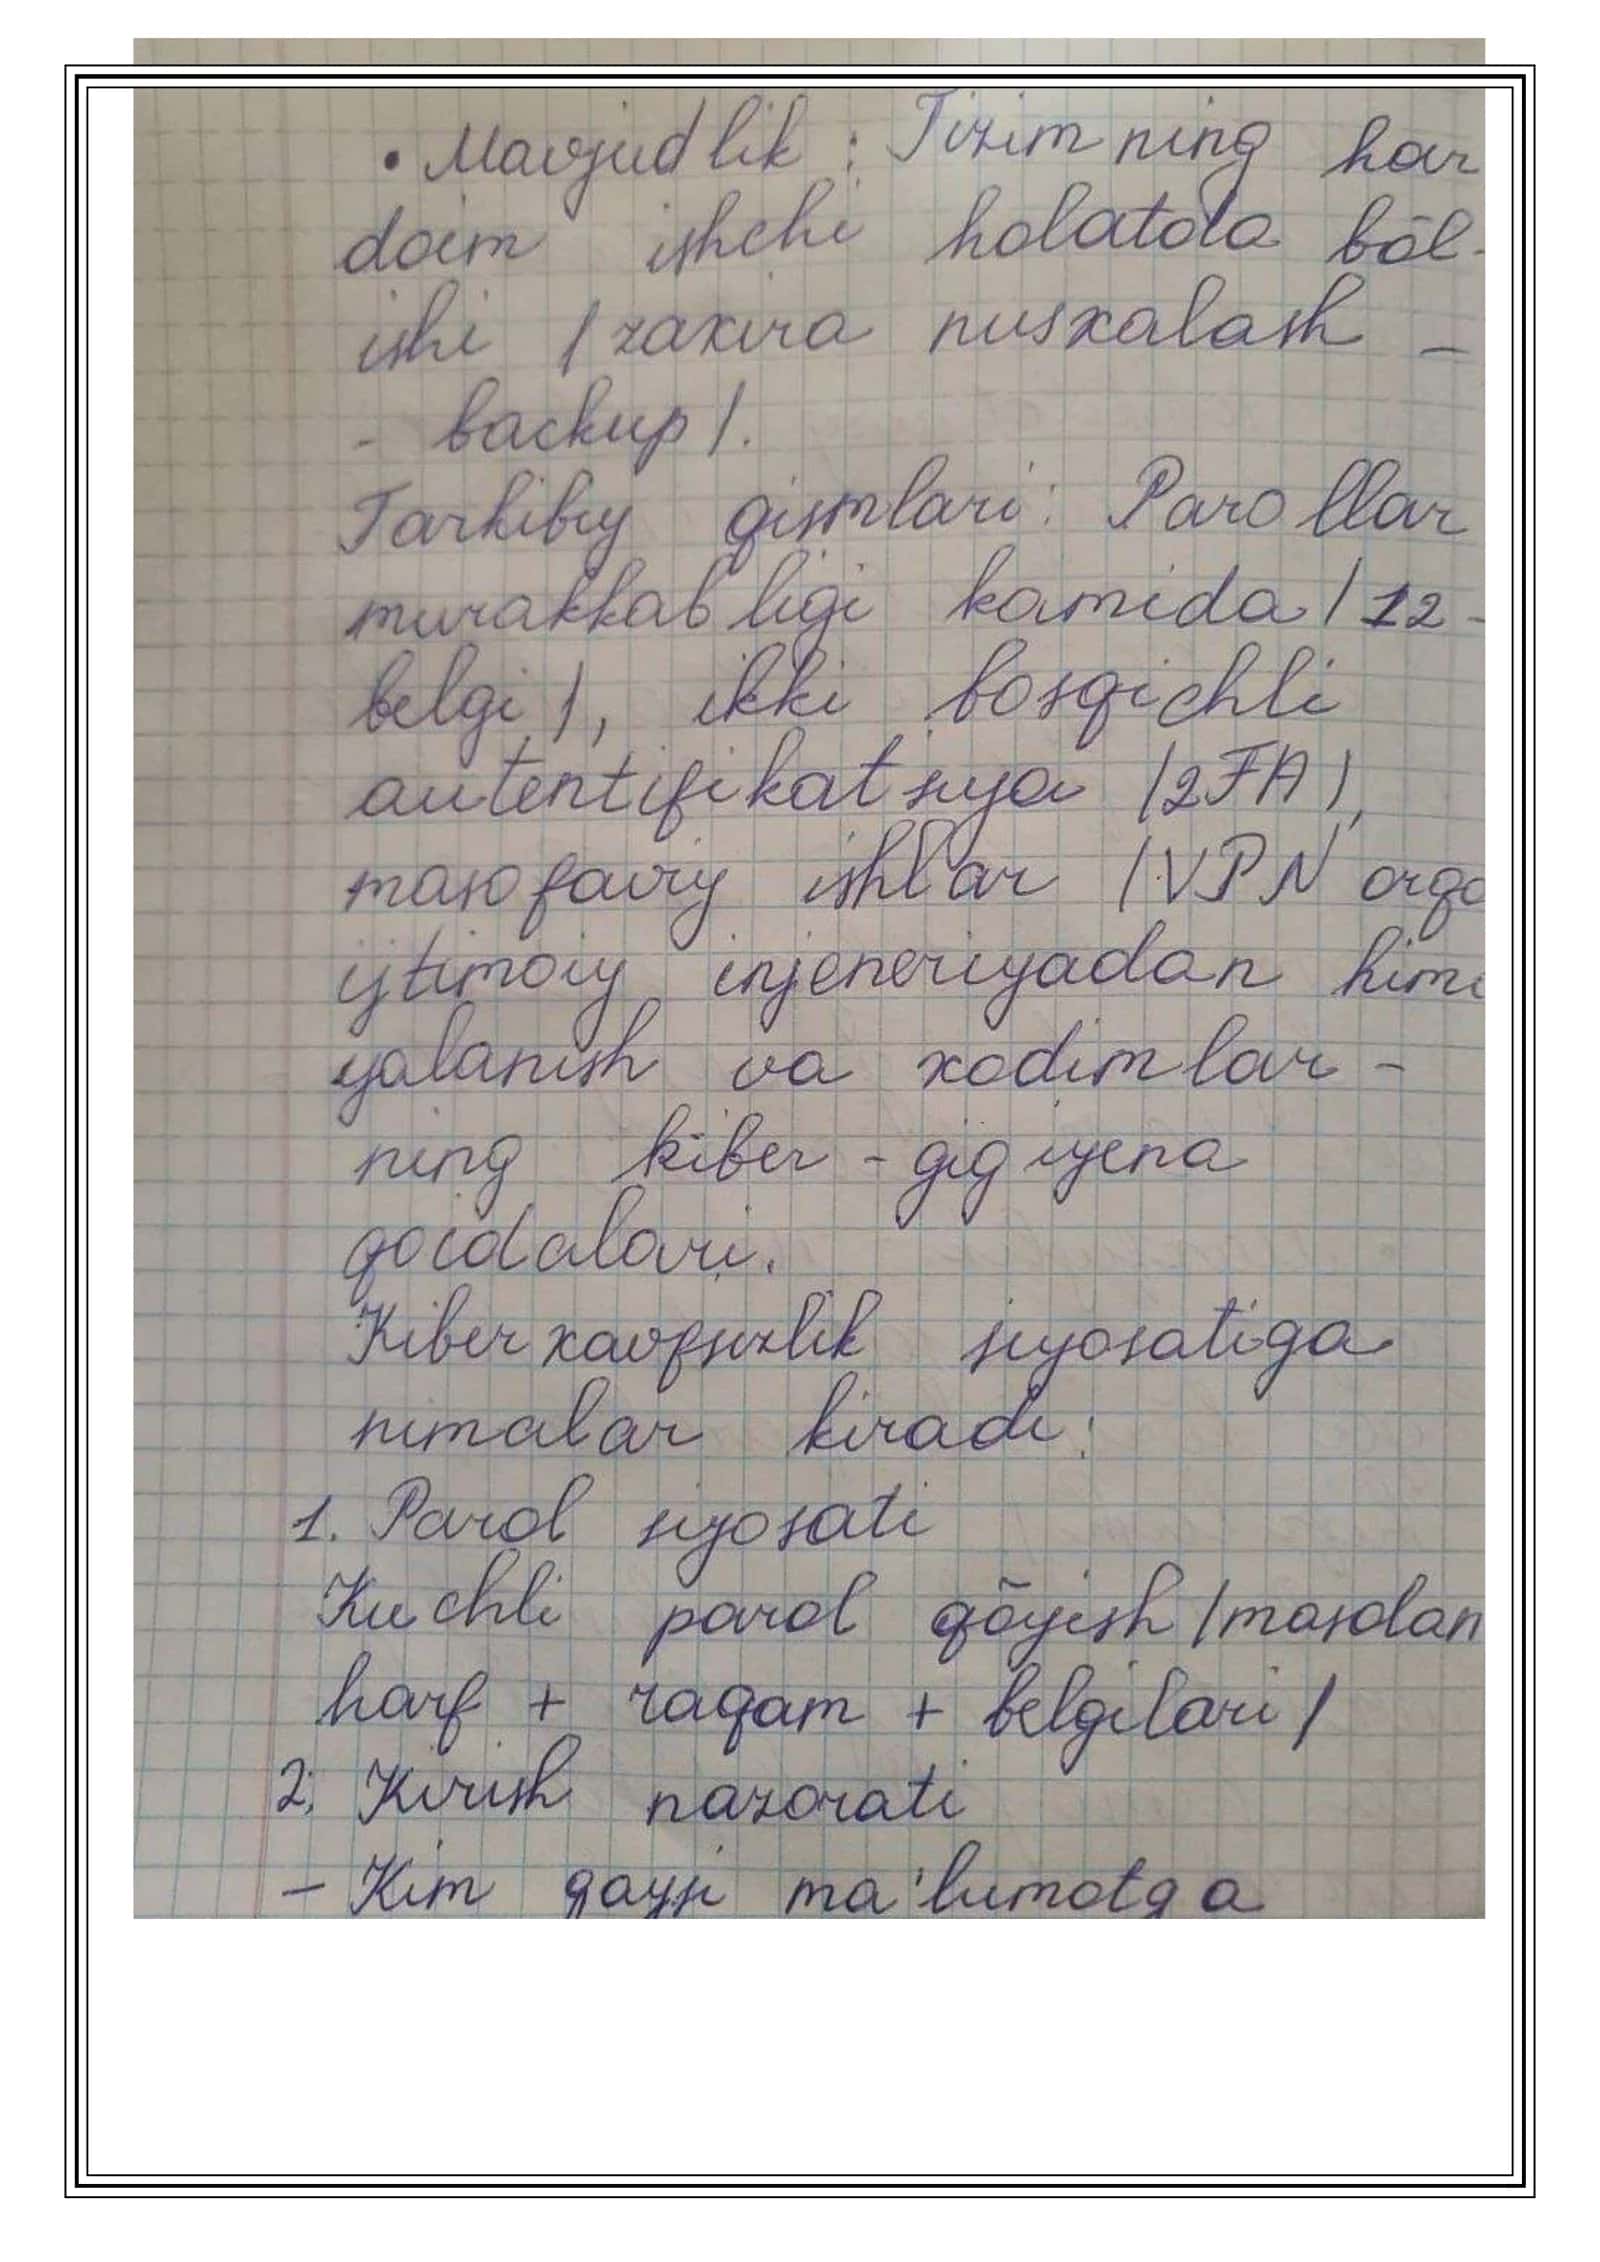 • Mavjudlik: Tizimning har
doim ishchi holatda bōl-
ishi /zaxira nusxalash -
- backup/.
Tarkibiy qismlari: Parollar
murakkabligi kamida /12-
belgi/, ikki bosqichli
autentifikatsiya /2FA/,
masofaviy ishlar /VPN orqa
ijtimoiy injeneriyadan himo
yalanish va xodimlar-
ning kiber-gigiyena
qoidalari.
Kiberxavfsizlik siyosatiga
nimalar kiradi:
1. Parol siyosati
Kuchli parol qōyish /masalan
harf + raqam + belgilari/
2. Kirish nazorati
- Kim qaysi ma'lumotga